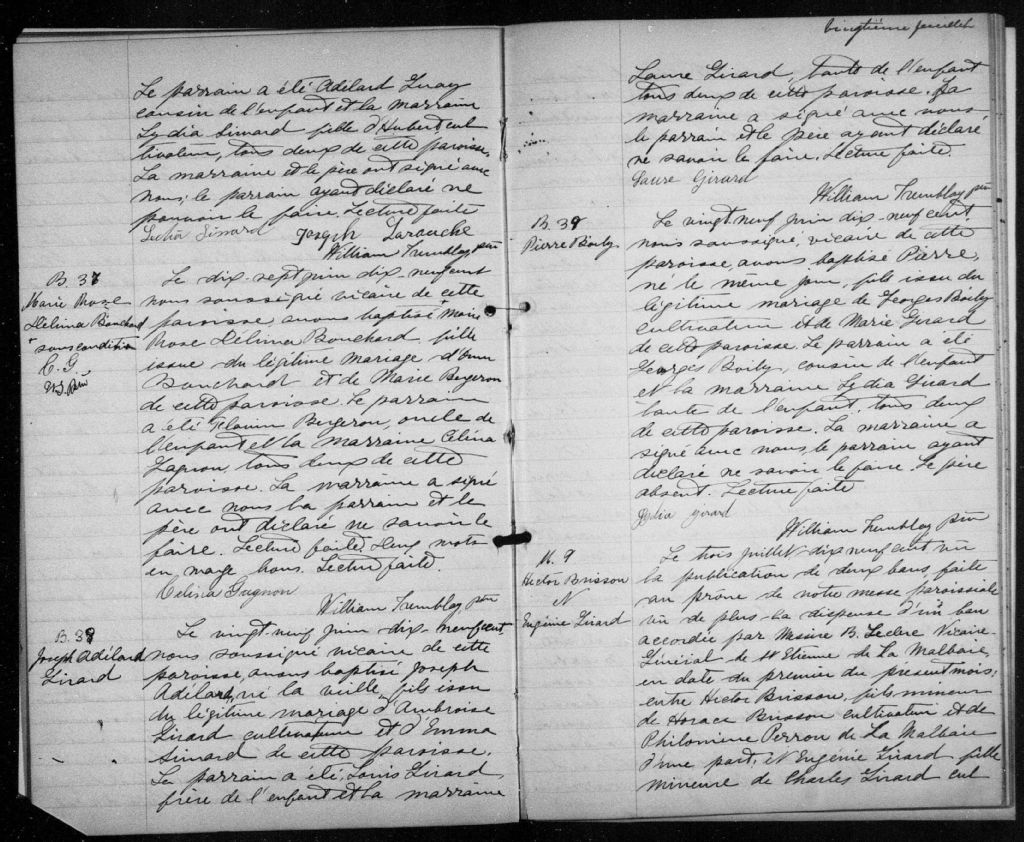 Le parrain a été Adélard Gimay
cousin de l'enfant et la marraine
Lydia Simard fille d'Hubert cul
tivateur, tous deux de cette paroisse.
La marraine et le père ont signé avec
nous; le parrain ayant déclaré ne
pouvoir le faire. Lecture faite
Lydia Simard Joseph Larouche
William Tremblay ptre
B. 37
Marie Rose
Délima Bouchard
+ sous condition
W.T. Ptre
Le dix-sept juin dix-neuf cent
nous soussigné vicaire de cette
paroisse, avons baptisé + Marie
Rose Délima Bouchard, fille
issue du légitime mariage d'
Bouchard et de Marie Bergeron
de cette paroisse. Le parrain
a été Bergeron, oncle de
l'enfant et la marraine
Gagnon, tous deux de cette
paroisse. La marraine a signé
avec nous le parrain et le
père ont déclaré ne savoir le
faire. Lecture faite. Deux mots
en marge bons. Lecture faite.
Célina Gagnon
William Tremblay ptre
B. 38
Joseph Adélard
Girard
Le vingt-neuf juin dix-neuf cent
nous soussigné vicaire de cette
paroisse, avons baptisé Joseph
Adélard, né la veille, fils issu
du légitime mariage d'Ambroise
Girard cultivateur et d'Emma
Simard de cette paroisse.
Le parrain a été Louis Girard
frère de l'enfant et la marraine
vingtième feuillet
Laure Girard, tante de l'enfant
tous deux de cette paroisse. La
marraine a signé avec nous
le parrain et le père ayant déclaré
ne savoir le faire. Lecture faite
Laure Girard
William Tremblay ptre
B. 39
Pierre Boily
Le vingt-neuf juin dix-neuf cent,
nous soussigné, vicaire de cette
paroisse, avons baptisé Pierre,
né le même jour, fils issu du
légitime mariage de Georges Boily
cultivateur et de Marie Girard
de cette paroisse. Le parrain a été
Georges Boily, cousin de l'enfant
et la marraine Lydia Girard
tante de l'enfant, tous deux
de cette paroisse. La marraine a
signé avec nous, le parrain ayant
déclaré ne savoir le faire. Le père
absent. Lecture faite
Lydia Girard
William Tremblay ptre
M. 9
Hector Brisson
&
Eugénie Girard
Le trois juillet dix neuf cent vu
la publication de deux bans faite
au prône de notre messe paroissiale
vu de plus la dispense d'un ban
accordée par Messire B. Leclerc Vicaire
Général de St Etienne de La Malbaie,
en date du premier du présent mois;
entre Hector Brisson, fils mineur
de Horace Brisson cultivateur et de
Philomène Perron de La Malbaie
d'une part; et Eugénie Girard fille
mineure de Charles Girard cul